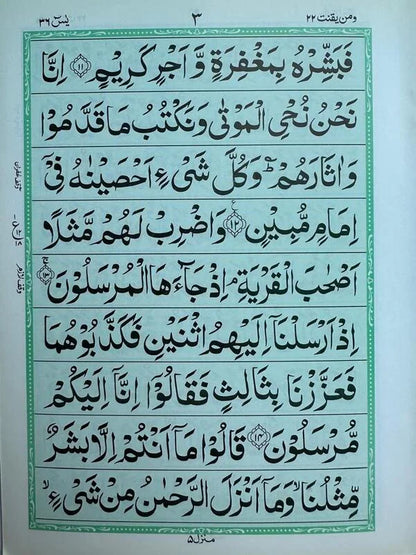 ومن يقنت ٢٢ ٣ يٰسٓ ٣٦
فَبَشِّرْهُ بِمَغْفِرَةٍ وَّ اَجْرٍ كَرِيْمٍ ۝۱۱ اِنَّا
نَحْنُ نُحْیِ الْمَوْتٰی وَنَكْتُبُ مَا قَدَّمُوْا
وَ اٰثَارَهُمْ ؕ وَكُلَّ شَیْءٍ اَحْصَيْنٰهُ فِیْۤ
اِمَامٍ مُّبِيْنٍ ۝۱۲ وَاضْرِبْ لَهُمْ مَّثَلًا
اَصْحٰبَ الْقَرْيَةِ ۘ اِذْ جَآءَهَا الْمُرْسَلُوْنَ ۝۱۳
اِذْ اَرْسَلْنَاۤ اِلَيْهِمُ اثْنَيْنِ فَكَذَّبُوْهُمَا
فَعَزَّزْنَا بِثَالِثٍ فَقَالُوْۤا اِنَّاۤ اِلَيْكُمْ
مُّرْسَلُوْنَ ۝۱۴ قَالُوْا مَاۤ اَنْتُمْ اِلَّا بَشَرٌ
مِّثْلُنَا ۙ وَمَاۤ اَنْزَلَ الرَّحْمٰنُ مِنْ شَیْءٍ ۙ
منزل ۵